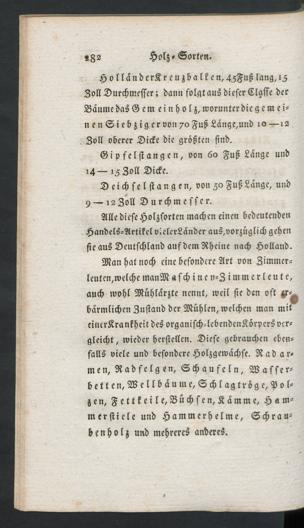 282 Holz-Sorten.
Holländer Kreuzbalken, 45 Fuß lang, 15
Zoll Durchmesser; dann folgt aus dieser Classe der
Bäume das Gemeinholz, worunter die gemei-
nen Siebziger von 70 Fuß Länge, und 10 — 12
Zoll oberer Dicke die größten sind.
Gipfelstangen, von 60 Fuß Länge und
14 — 15 Zoll Dicke.
Deichselstangen, von 50 Fuß Länge, und
9 — 12 Zoll Durchmesser.
Alle diese Holzsorten machen einen bedeutenden
Handels-Artikel vieler Länder aus, vorzüglich gehen
sie aus Deutschland auf dem Rheine nach Holland.
Man hat noch eine besondere Art von Zimmer-
leuten, welche man Maschinen-Zimmerleute,
auch wohl Mühlärzte nennt, weil sie den oft er-
bärmlichen Zustand der Mühlen, welchen man mit
einer Krankheit des organisch-lebenden Körpers ver-
gleicht, wieder herstellen. Diese gebrauchen eben-
falls viele und besondere Holzgewächse. Radar-
men, Radfelgen, Schaufeln, Wasser-
betten, Wellbäume, Schlagtröge, Pol-
zen, Fettkeile, Büchsen, Kämme, Ham-
merstiele und Hammerhelme, Schrau-
benholz und mehreres anderes.